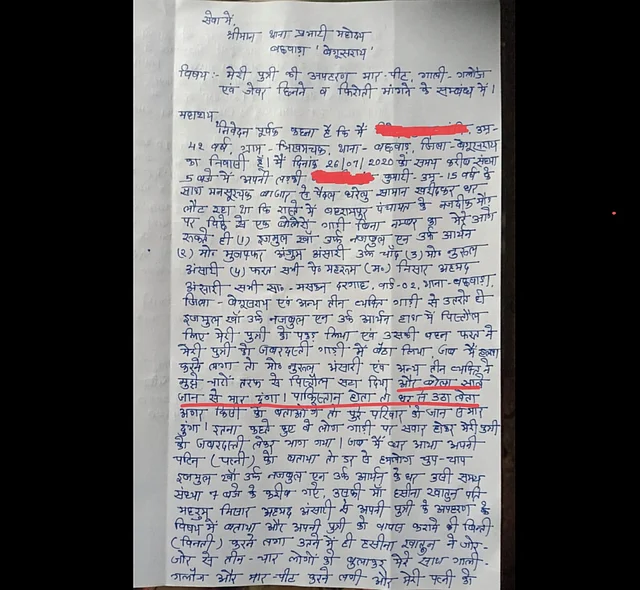 सेवा में,
श्रीमान थाना प्रभारी महोदय
बछवाड़ा 'बेगूसराय'
विषय:- मेरी पुत्री की अपहरण मार-पीट, गाली-गलौज
एवं जेवर छिनने व फिरौती मांगने के सम्बन्ध में।
महाशय,
निवेदन पूर्वक कहना है कि मैं उम्र-
42 वर्ष, ग्राम- भिखमचक, थाना- बछवाड़ा, जिला- बेगूसराय
का निवासी हूँ। मैं दिनांक 26/07/2020 को समय करीब संध्या
5 बजे मैं अपनी लड़की कुमारी- उम्र- 15 वर्ष के
साथ मनसूरचक बाजार से पैदल घरेलु सामान खरीदकर घर
लौट रहा था कि रास्ते में बहरामपुर पंचायत के नजदीक मोड़
पर पिछे से एक बोलेरो गाड़ी बिना नम्बर का मेरे आगे
रूकते ही (1) इजमुल खाँ उर्फ नजकुल एन उर्फ आर्यन
(2) मो० मुजफ्फर अंगुम अंसारी उर्फ चाँद (3) मो० नुरूल
अंसारी (4) फरत सभी पे० महरूम (म०) निसार अहमद
अंसारी सभी सा०- मसहन दरगाह, वार्ड-02, थाना- बछवाड़ा,
जिला- बेगूसराय एवं अन्य तीन व्यक्ति गाड़ी से उतरते ही
इजमुल खाँ उर्फ नजकुल एन उर्फ आर्यन हाथ में पिस्तौल
लिए मेरी पुत्री को पकड़ लिया एवं उसकी बहन फरत ने
मेरी पुत्री को जबरदस्ती गाड़ी में बैठा लिया, जब मैं हल्ला
करने लगा तो मो० नुरूल अंसारी एवं अन्य तीन व्यक्ति ने
मुझे चारो तरफ से पिस्तौल सटा दिया और बोला साले
जान से मार दुंगा। पाकिस्तान होता तो घर से उठा लेता
अगर किसी को बताओगे तो पुरे परिवार को जान से मार
दुंगा। इतना कहते हुए वे लोग गाड़ी पर सवार होकर मेरी पुत्री
को जबरदस्ती लेकर भाग गया। जब मैं घर आया अपनी
पत्नि (पत्नी) को बताया तो डर से हमलोग चुप-चाप
इजमुल खाँ उर्फ नजकुल एन उर्फ आर्यन के घर उसी समय
संध्या 7 बजे के करीब गए, उसकी माँ हसीना खातुन पति
महरूम निसार अहमद अंसारी से अपनी पुत्री के अपहरण के
विषय में बताया और अपनी पुत्री को वापस करने की विनती
(विनती) करने लगा उतने में ही हसीना खातुन ने जोर-
जोर से तीन-चार लोगों को बुलाकर मेरे साथ गाली-
गलौज और मार-पीट करने लगी और मेरी पत्नी को